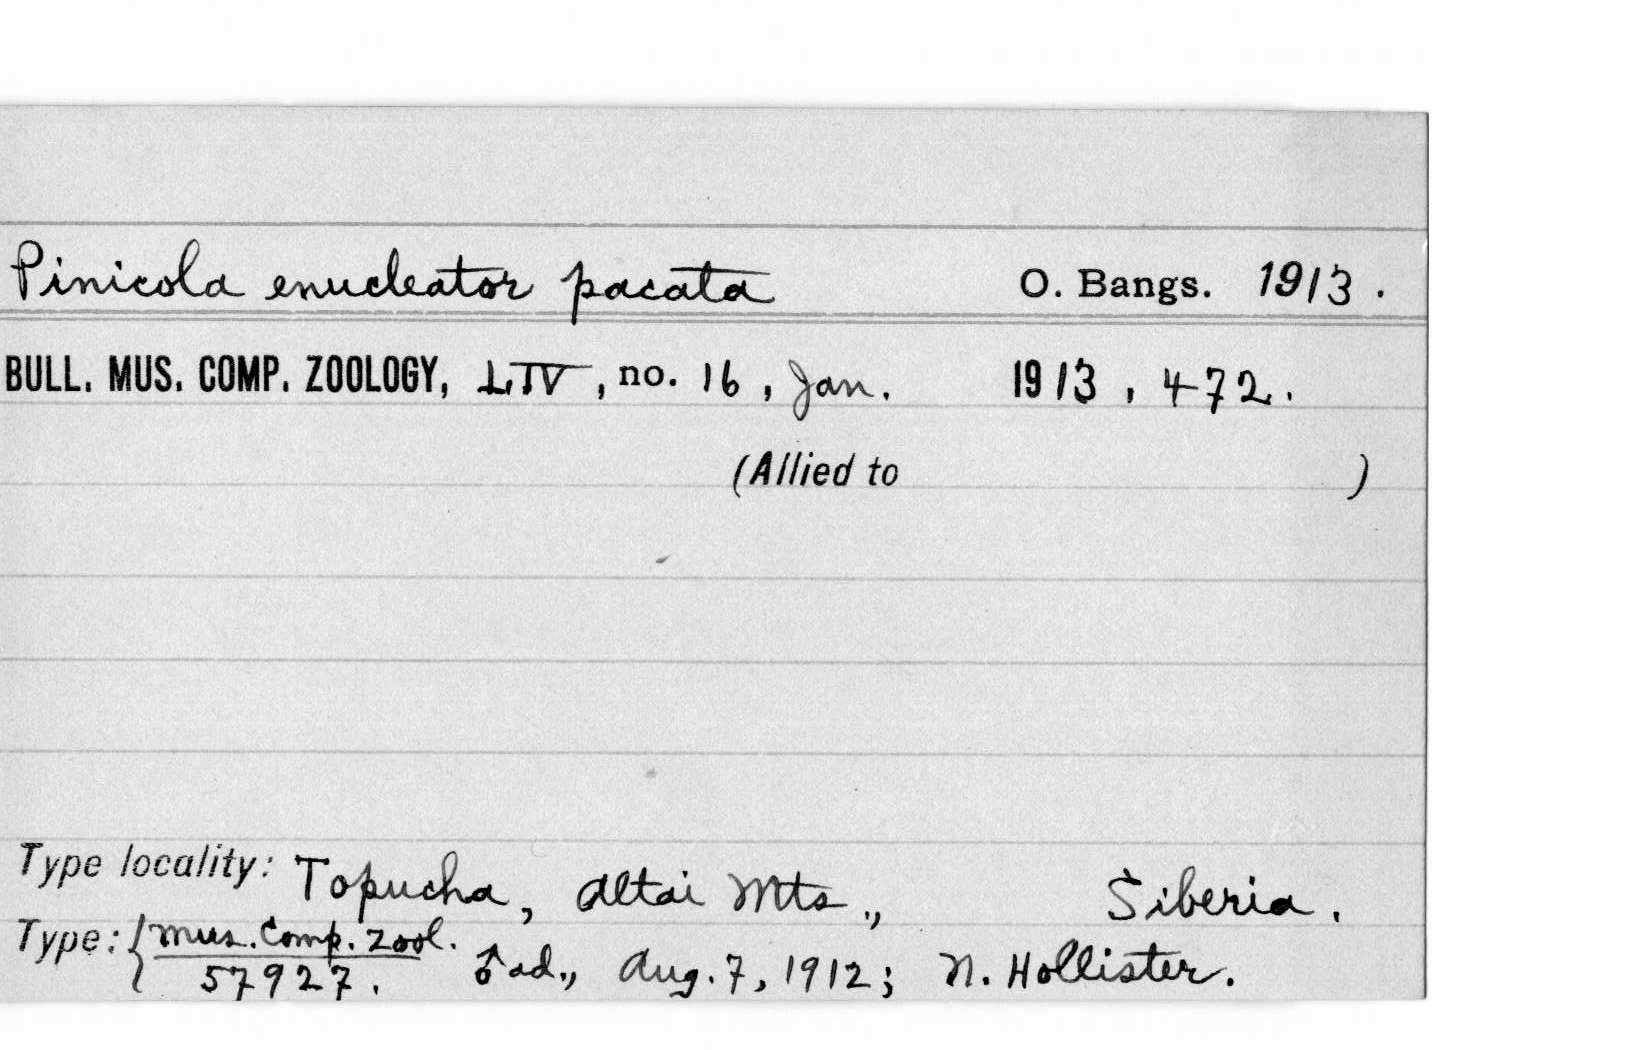 Pinicola enucleator pacata O. Bangs. 1913.
BULL. MUS. COMP. ZOOLOGY, LIV, no. 16, Jan. 1913, 472.
(Allied to )
Type locality: Topucha, Altai Mts., Siberia.
Type: { Mus. Comp. Zool.
57927. ♂ ad., Aug. 7, 1912; N. Hollister.